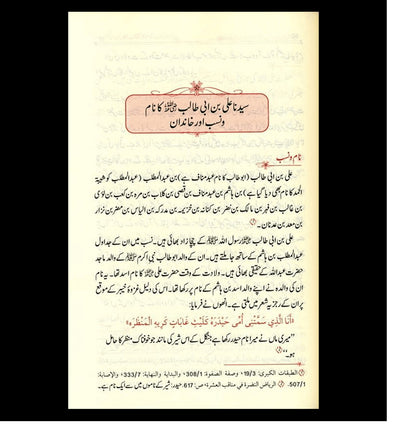 سیدنا علی بن ابی طالب رضی اللہ عنہ کا نام
ونسب اور خاندان
نام ونسب
علی بن ابی طالب (ابوطالب کا نام عبدمناف ہے) بن عبدالمطلب (عبدالمطلب کو شیبۃ
الحمد کا نام بھی دیا گیا ہے) بن ہاشم بن عبدمناف بن قصی بن کلاب بن مرہ بن کعب بن لؤی
بن غالب بن فہر بن مالک بن نضر بن کنانہ بن خزیمہ بن مدرکہ بن الیاس بن مضر بن نزار
بن معد بن عدنان۔
علی بن ابی طالب رضی اللہ عنہ رسول اللہ ﷺ کے چچازاد بھائی ہیں۔ نسب میں ان کے جد اول
عبدالمطلب بن ہاشم کے ساتھ جاملتے ہیں۔ ان کے والد ابوطالب نبی اکرم ﷺ کے والد ماجد
حضرت عبداللہ کے حقیقی بھائی ہیں۔ ولادت کے وقت حضرت علی رضی اللہ عنہ کا نام اسد تھا۔ یہ نام
ان کی والدہ نے اپنے والد اسد بن ہاشم کے نام پر رکھا تھا۔ اس کی دلیل غزوۂ خیبر کے موقع
پر ان کے رجزیہ شعر میں ملتی ہے۔ انھوں نے فرمایا:
«أَنَا الَّذِي سَمَّتْنِي أُمِّي حَيْدَرَهْ كَلَيْثِ غَابَاتٍ كَرِيهِ الْمَنْظَرَهْ»
”میری ماں نے میرا نام حیدر رکھا ہے جنگل کے اس شیر کی مانند جو خوفناک منظر کا حامل
ہو۔“
الطبقات الكبرى: 19/3، وصفة الصفوة: 308/1، والبداية والنهاية: 333/7، والإصابة:
507/1. الرياض النضرة في مناقب العشرة، ص: 617. حیدر: شیر کے ناموں میں سے ایک نام ہے۔